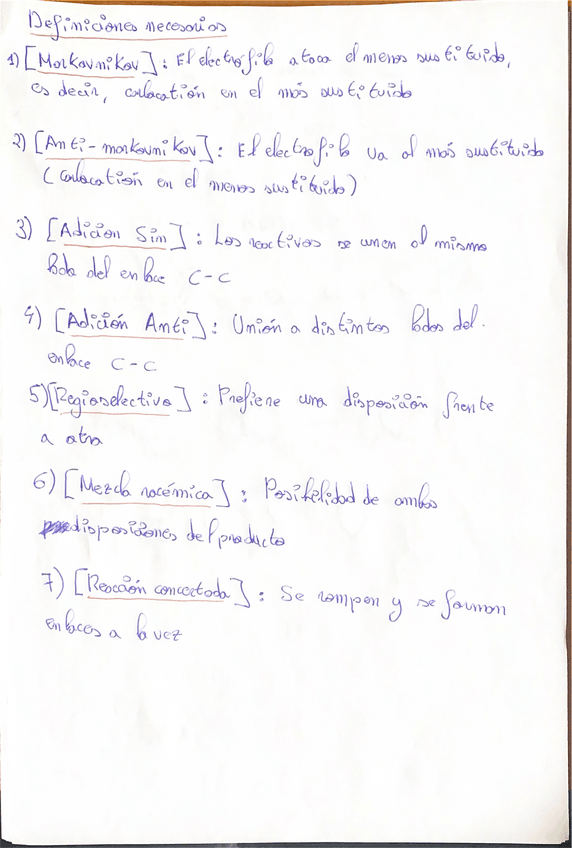 Definiciones necesarias
1) [Markovnikov] : El electrófilo ataca el menos sustituido,
es decir, carbocatión en el más sustituido
2) [Anti-markovnikov] : El electrofilo va al más sustituido
(carbocatión en el menos sustituido)
3) [Adición Sin] : Los reactivos se unen al mismo
lado del enlace C-C
4) [Adición Anti] : Unión a distintos lados del
enlace C-C
5) [Regioselectiva] : Prefiere una disposición frente
a otra
6) [Mezcla racémica] : Posibilidad de ambas
disposiciones del producto
7) [Reacción concertada] : Se rompen y se forman
enlaces a la vez